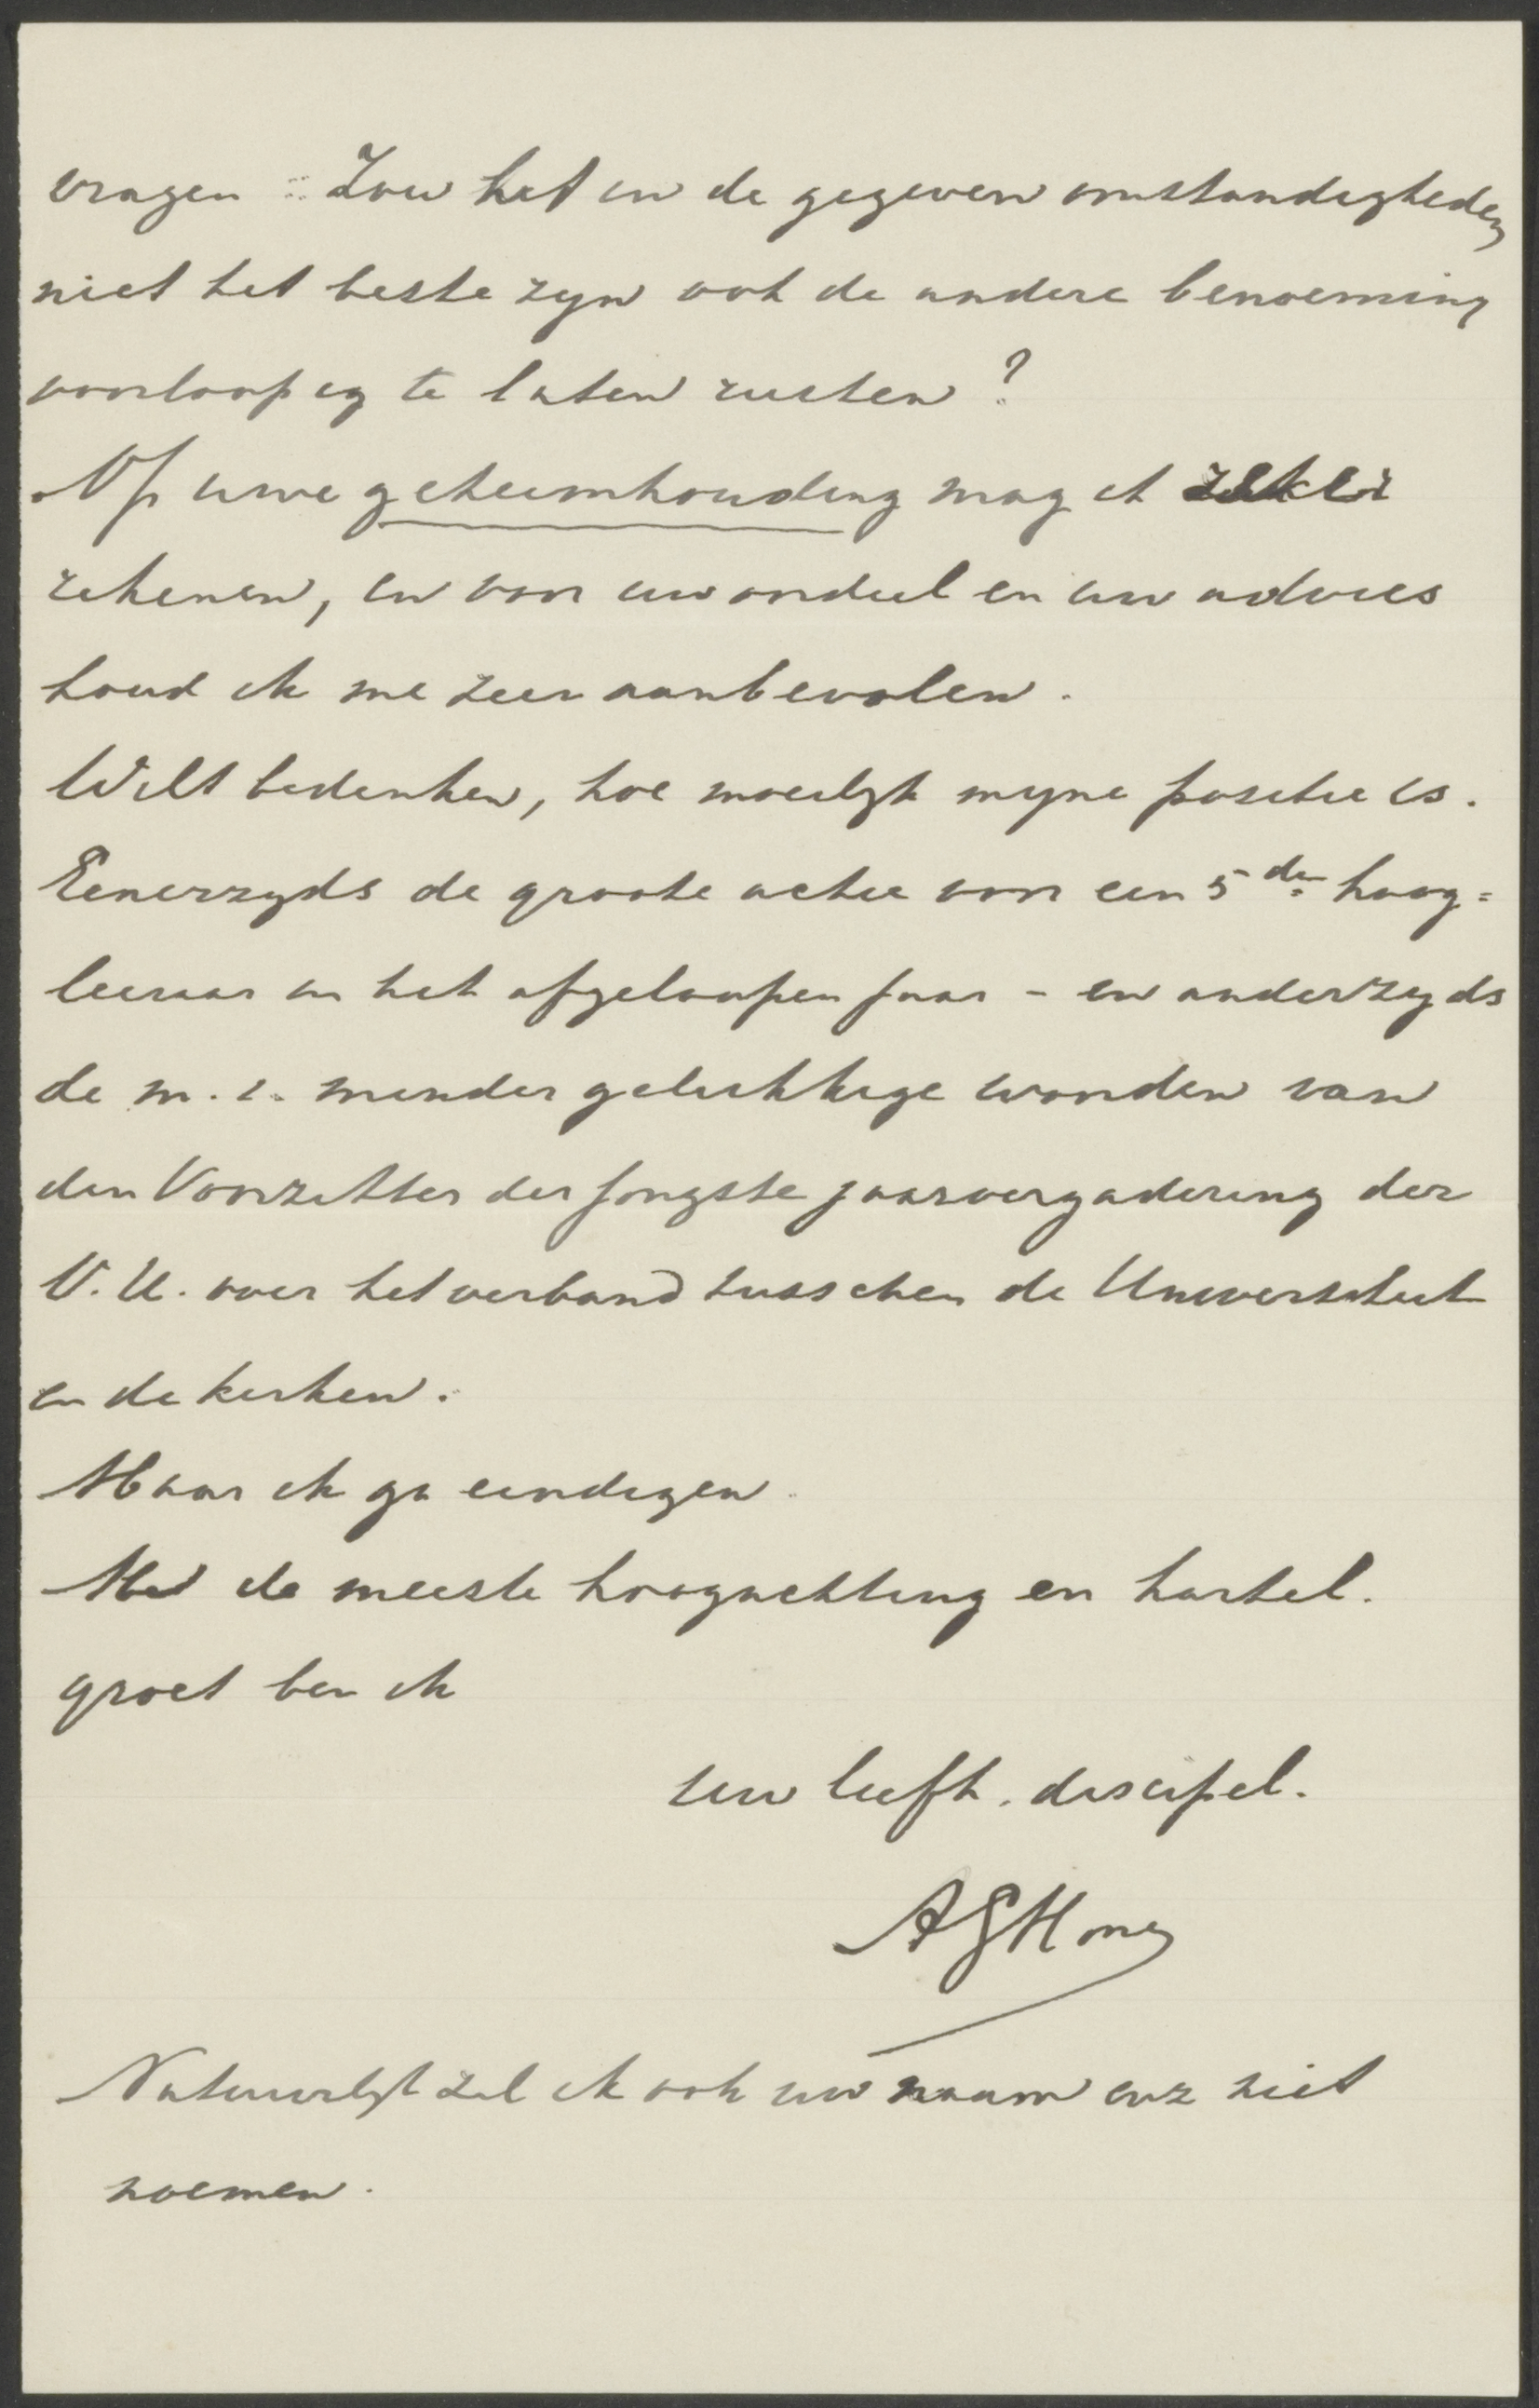 vragen : Zou het in de gegeven omstandigheden
niet het beste zyn ook de andere benoeming
voorloopig te laten rusten ?
Op uwe geheimhouding mag ik zeker
rekenen, en voor uw oordeel en uw advies
houd ik me zeer aanbevolen.
Wilt bedenken, hoe moeilyk myne positie is.
Eenerzyds de groote actie voor een 5den hoog=
leeraar in het afgeloopen jaar - en anderzyds
de m. i. minder gelukkige woorden van
den Voorzitter der jongste jaarvergadering der
V. U. over het verband tusschen de Universiteit
en de kerken.
Maar ik ga eindigen.
Met de meeste hoogachting en hartel.
groet ben ik
uw liefh. discipel.
AGHonig
Natuurlyk zal ik ook uw naam enz niet
noemen.